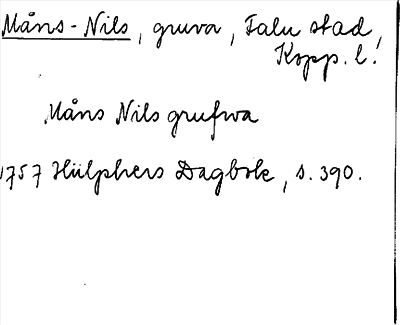 Måns-Nils, gruva, Falu stad,
Kopp. l.
Måns Nils grufwa
1757 Hülphers Dagbok, s. 390.